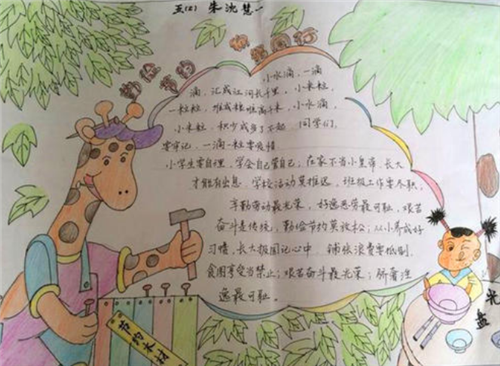 五(2) 朱沈慧一
勤俭节约伴我同行
小水滴,一滴
滴,汇成江河长千里。小米粒,
一粒粒,堆成粮垛高千米,小水滴,
小米粒,积少成多了不起 同学们,
要牢记,一滴一粒要爱惜
小学生要自理,学会自己管自己,在家不当小皇帝,长大
才能有出息。学校活动莫推迟,班级工作要尽职。
辛勤劳动最光荣,好逸恶劳最可耻,艰苦
奋斗是传统,勤俭节约莫放松;从小养成好
习惯,长大报国记心中,铺张浪费要抵制,
贪图享受当禁止;艰苦奋斗最光荣;骄奢淫
逸最可耻。
节约木材
光盘